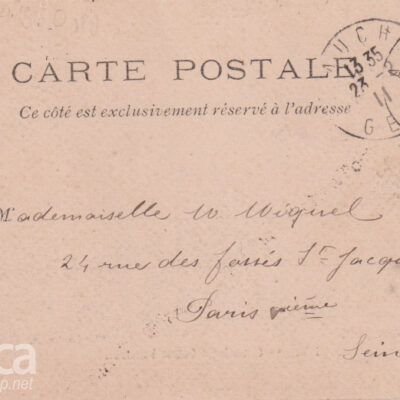 CARTE POSTALE
Ce côté est exclusivement réservé à l'adresse
AUCH
13 35
23 11
GE
Mademoiselle W Miquel
24 rue des fossés St Jacqu
Paris vième
Sein
ca
p.net